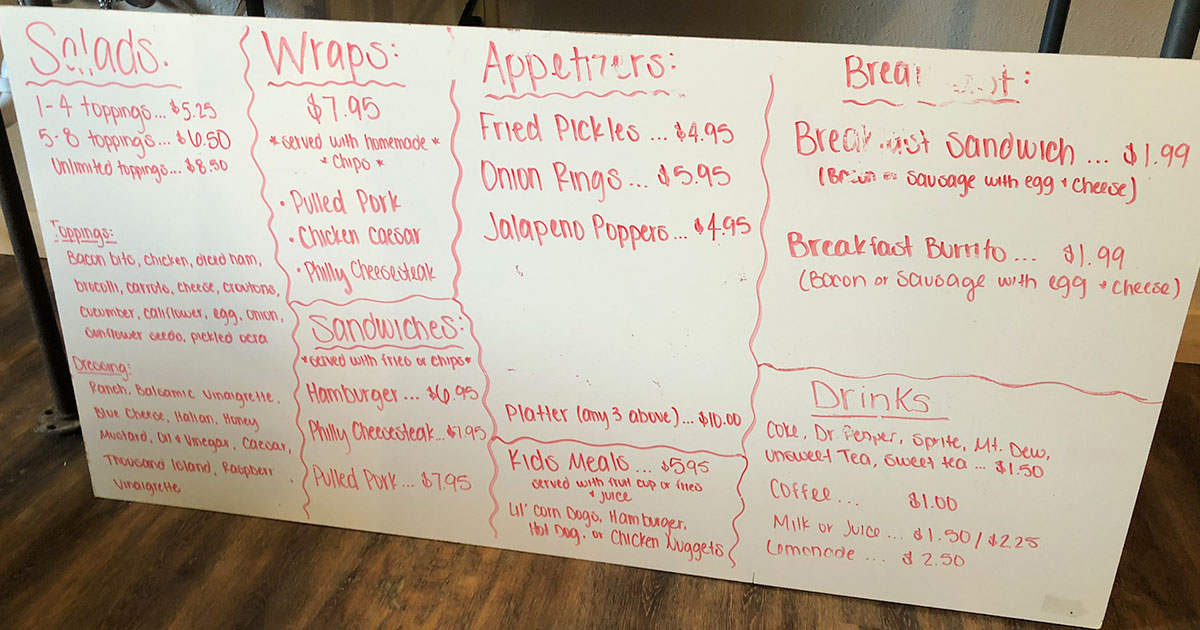 Salads.
1-4 toppings... $5.25
5-8 toppings... $6.50
Unlimited toppings... $8.50
Toppings:
Bacon bits, chicken, diced ham,
broculli, carrots, cheese, croutons,
cucumber, califlower, egg, onion,
sunflower seeds, pickled ocra
Dressing:
Ranch, Balsamic Vinaigrette,
Blue Cheese, Italian, Honey
Mustard, Oil & Vinegar, Caesar,
Thousand Island, Raspberr
Vinaigrette
Wraps:
$7.95
*served with homemade*
*chips*
• Pulled Pork
• Chicken Caesar
• Philly Cheesesteak
Sandwiches:
*served with fries or chips*
Hamburger... $6.95
Philly Cheesesteak... $7.95
Pulled Pork... $7.95
Appetizers:
Fried Pickles... $4.95
Onion Rings... $5.95
Jalapeno Poppers... $4.95
Platter (any 3 above)... $10.00
Kids Meals... $5.95
served with fruit cup or fries
+ juice
Lil' Corn Dogs, Hamburger,
Hot Dog, or Chicken Nuggets
Breakfast:
Breakfast Sandwich... $1.99
(Bacon or sausage with egg + cheese)
Breakfast Burrito... $1.99
(Bacon or sausage with egg + cheese)
Drinks
Coke, Dr. Pepper, Sprite, Mt. Dew,
Unsweet Tea, Sweet tea... $1.50
Coffee... $1.00
Milk or Juice... $1.50/$2.25
Lemonade... $2.50